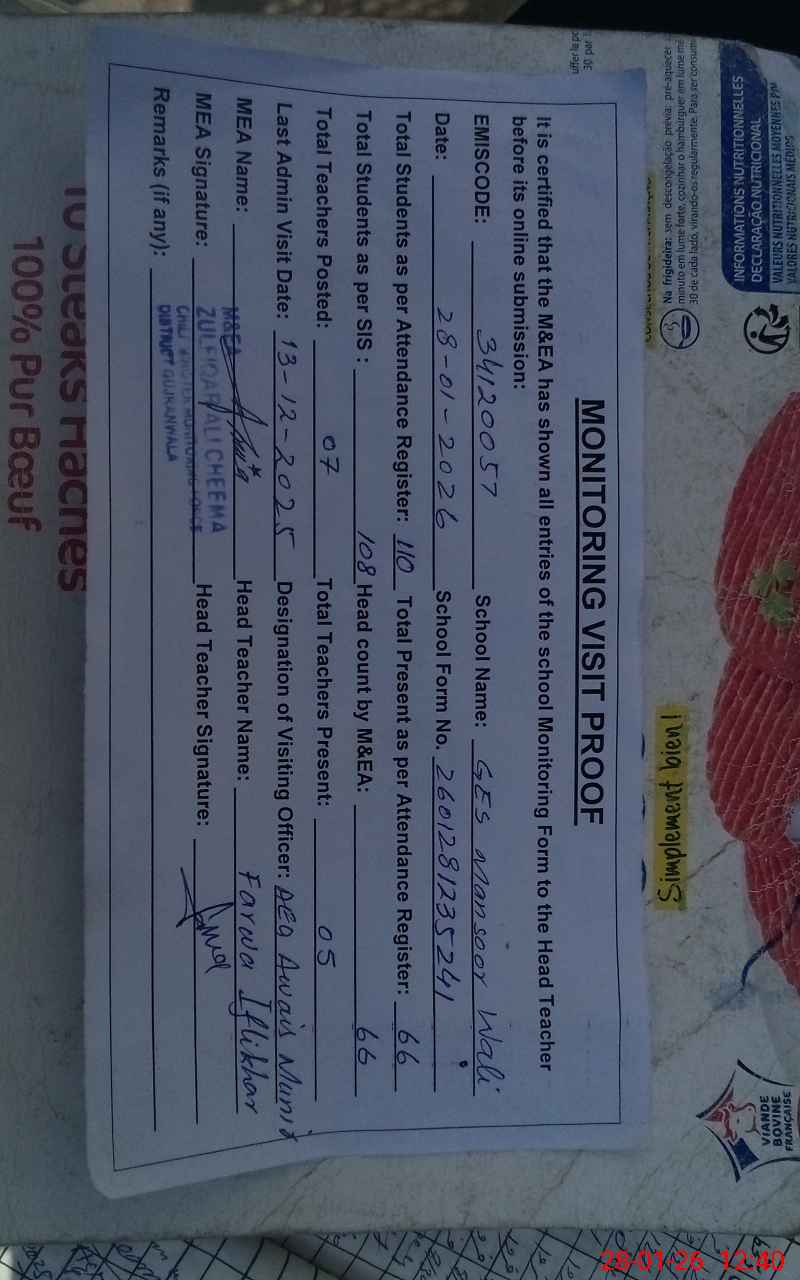 MONITORING VISIT PROOF
It is certified that the M&EA has shown all entries of the school Monitoring Form to the Head Teacher
before its online submission:
EMISCODE: 34120057 School Name: GES Mansoor Wali
Date: 28-01-2026 School Form No. 2601281235241
Total Students as per Attendance Register: 110 Total Present as per Attendance Register: 66
Total Students as per SIS : 108 Head count by M&EA: 66
Total Teachers Posted: 07 Total Teachers Present: 05
Last Admin Visit Date: 13-12-2025 Designation of Visiting Officer: AEO Awais Munir
MEA Name: Head Teacher Name: Farwa Iftikhar
MEA Signature: Head Teacher Signature:
Remarks (if any):
M&EA
ZULFIQAR ALI CHEEMA
CHIEF MINISTER MONITORING FORCE
DISTRICT GUJRANWALA
10 Steaks Hachés
100% Pur Bœuf
Simplement bien!
INFORMATIONS NUTRITIONNELLES
DECLARAÇÃO NUTRICIONAL
VALEURS NUTRITIONNELLES MOYENNES PAR
VIANDE
BOVINE
FRANÇAISE
28-01-26 12:40